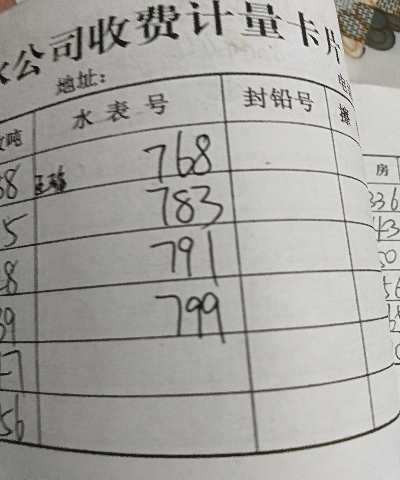 公司收费计量卡片
地址：
吨 水表号 封铅号
8 768
5 783
8 791
39 799
7
56
房
336
43
50
56